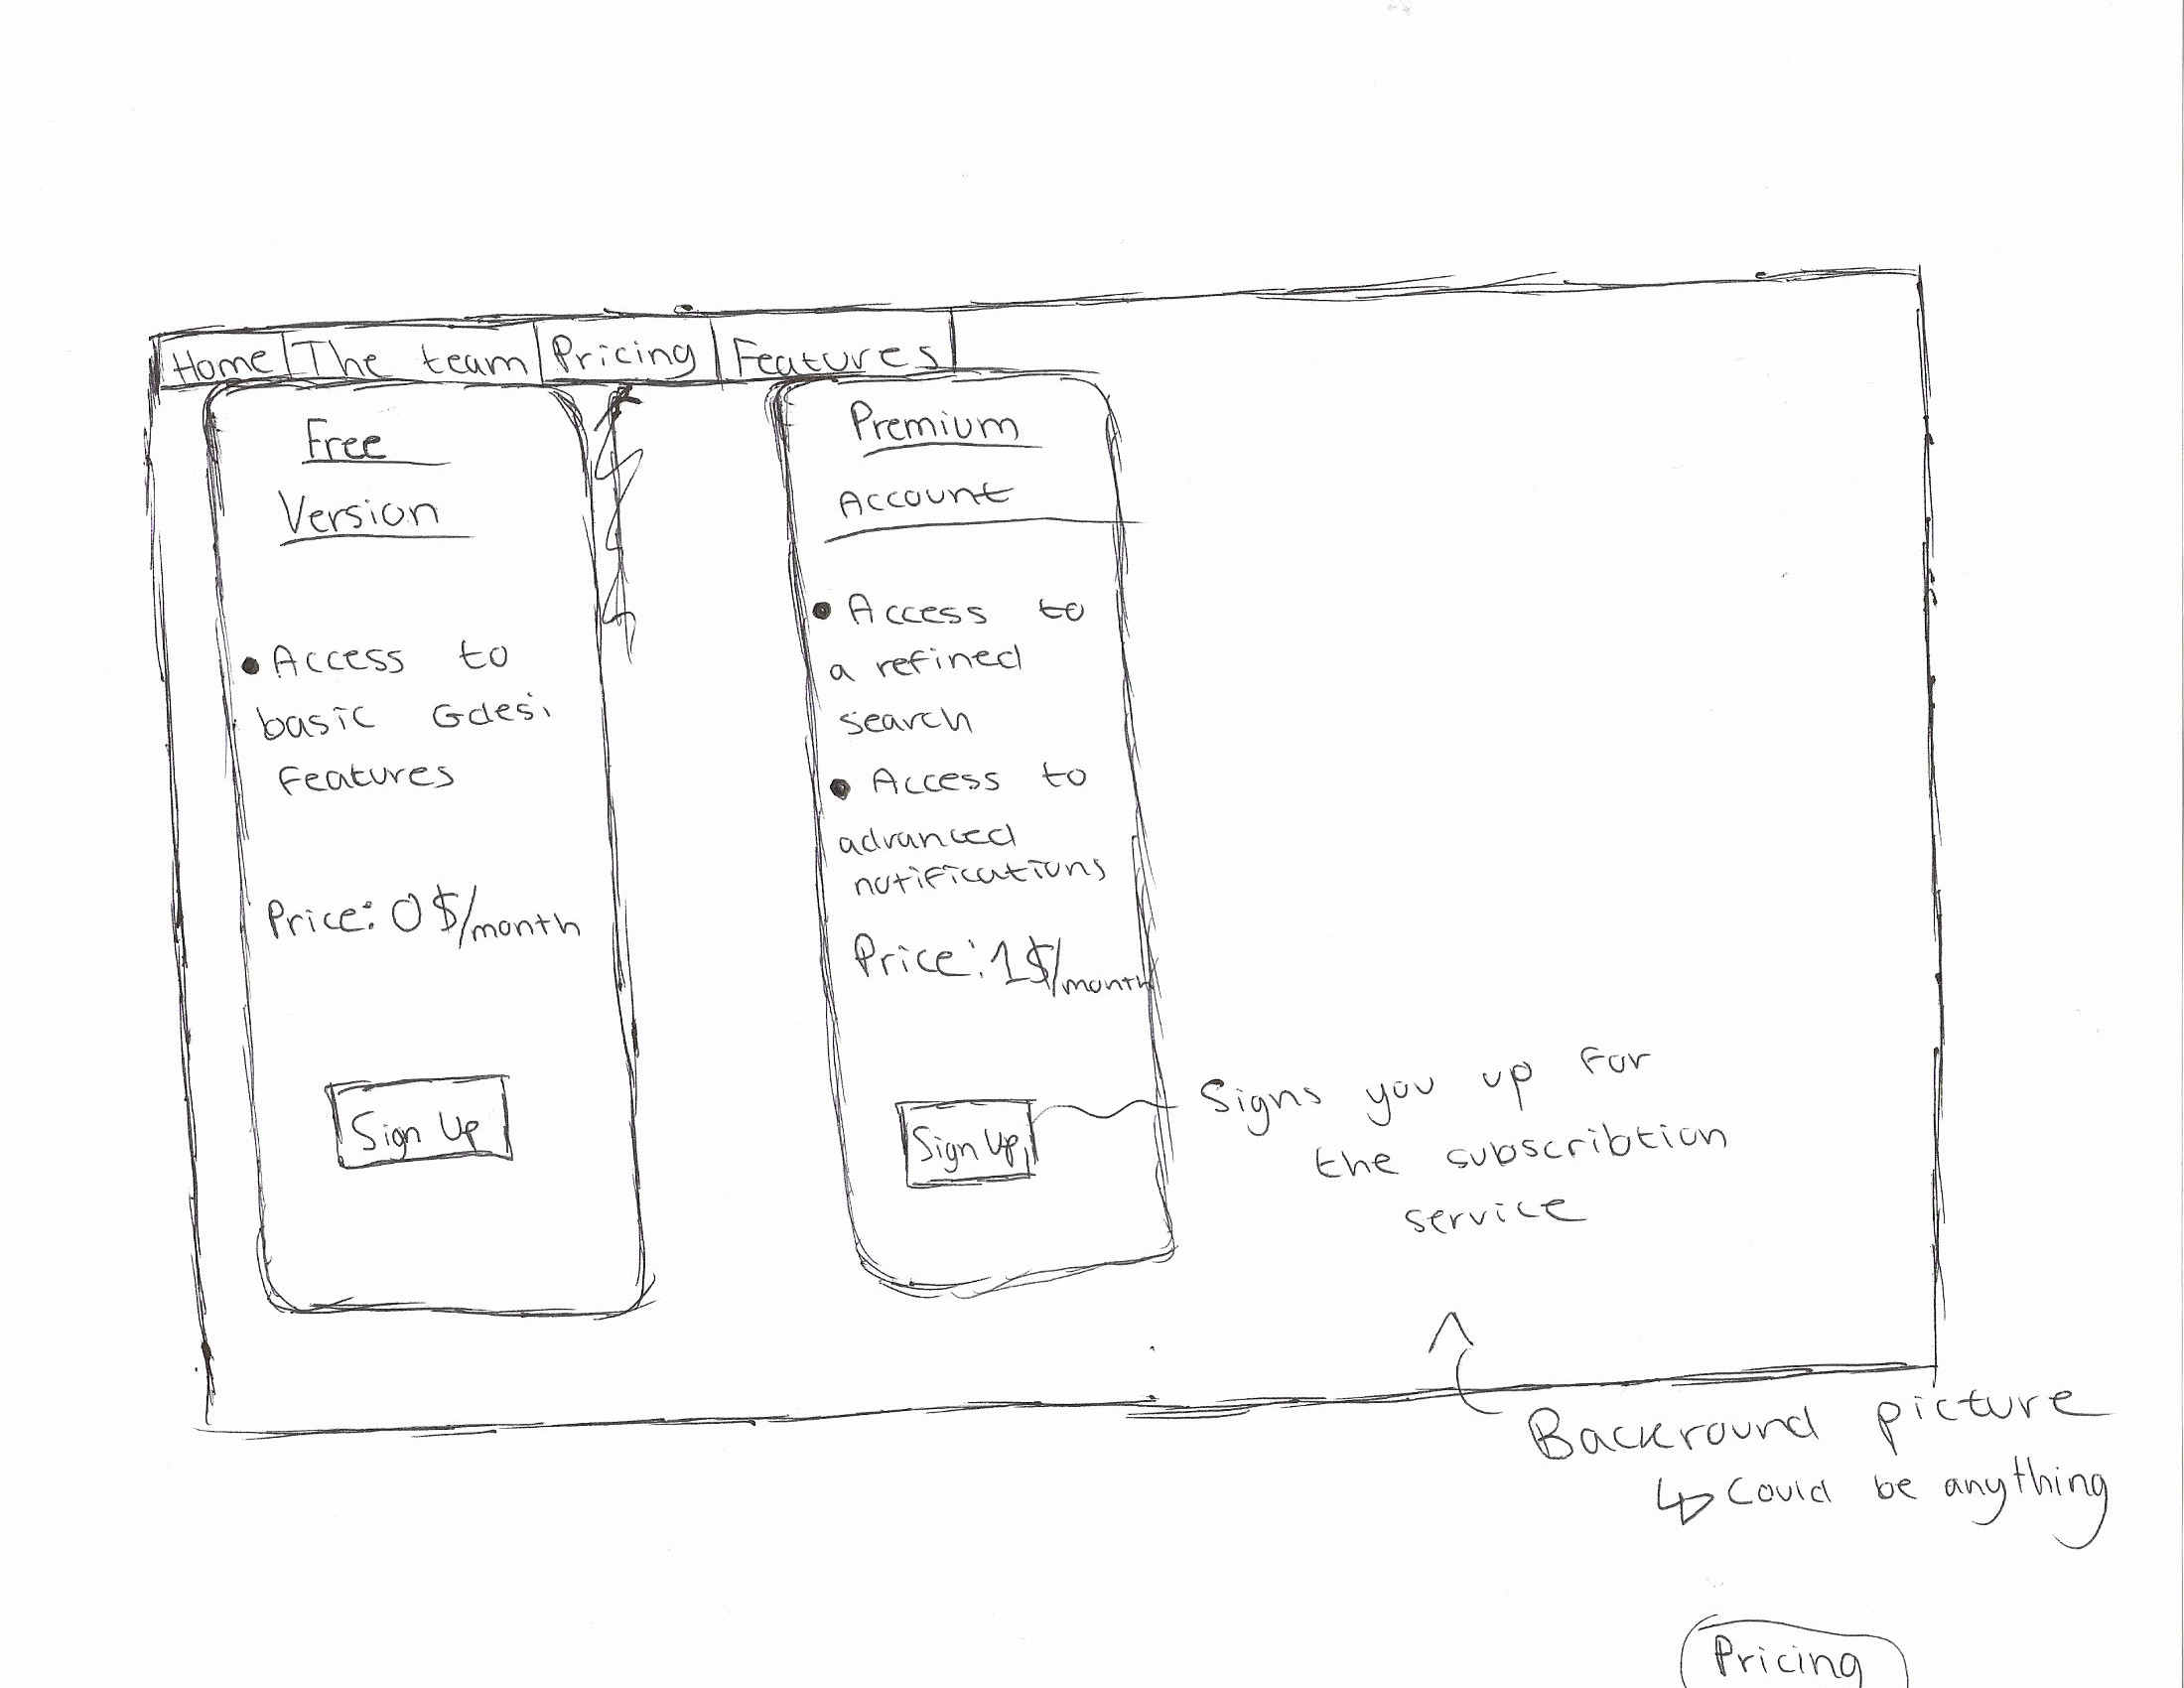 Home The team Pricing Features
Free
Version
• Access to
basic Gdesi
Features
Price: 0$/month
Sign Up
Premium
Account
• Access to
a refined
search
• Access to
advanced
notifications
Price: 1$/month
Sign Up
Signs you up for
the subscribtion
service
Backround picture
↳ Could be anything
Pricing